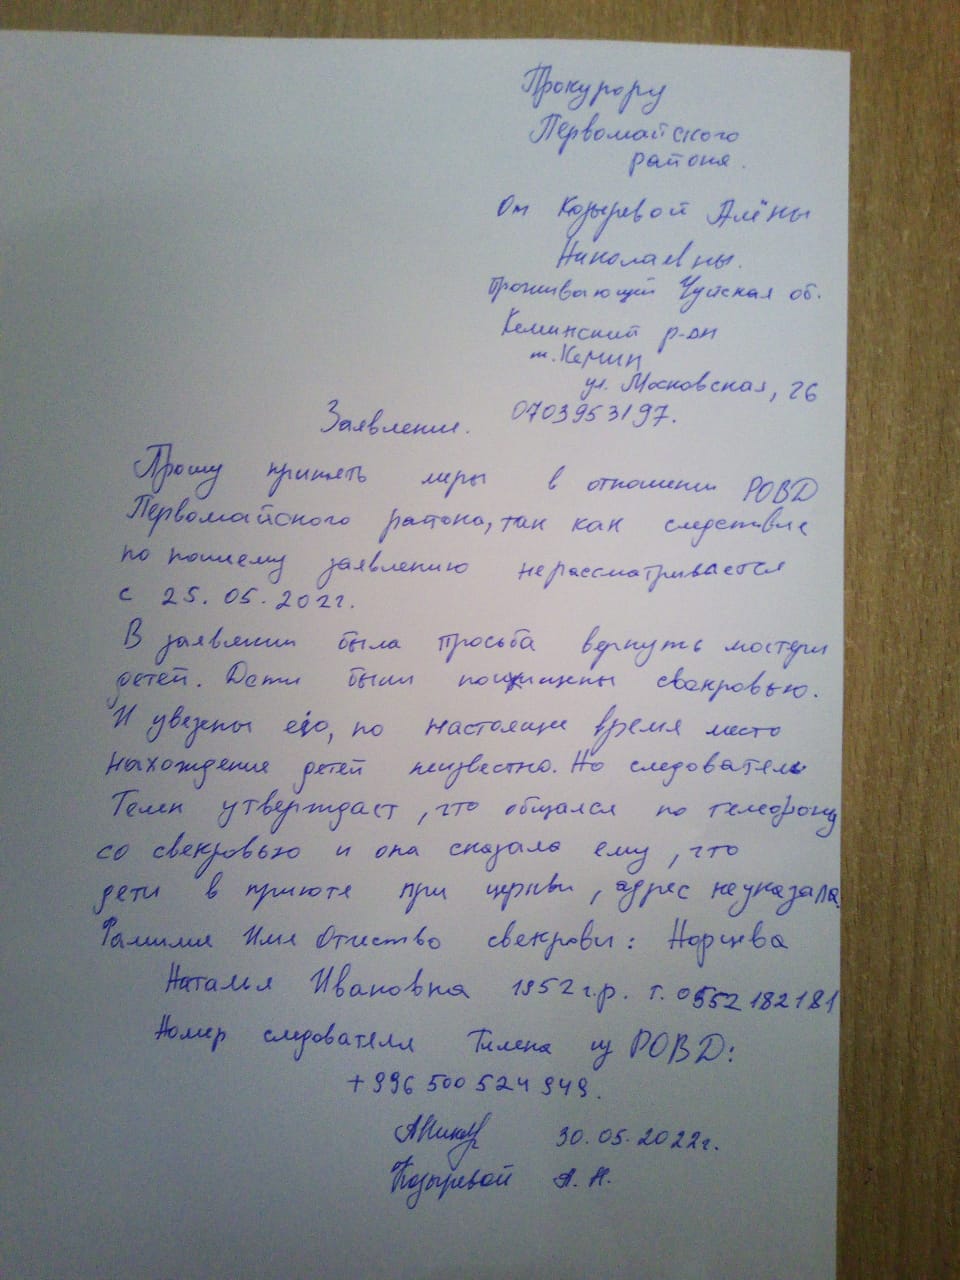 Прокурору
Первомайского
района.
От Козыревой Алёны
Николаевны.
проживающий Чуйская об.
Кеминский р-он
т. Кемин
ул. Московская, 26
0703953197.
Заявление.
Прошу принять меры в отношении РОВД
Первомайского района, так как следствие
по моему заявлению нерассматривается
с 25.05.202г.
В заявлении была просьба вернуть матери
детей. Дети были похищены свекровью.
И увезены его, по настоящие время место
нахождение детей неизвестно. Но следователь
Темен утверждает, что общался по телефону
со свекровью и она сказала ему, что
дети в приюте при церкви, адрес неуказала.
Фамилия Имя Отчество свекрови:
Наталья Ивановна 1952 г.р. т. 0552 182181
Номер следователя Тилена из РОВД:
+996 500 524 949.
30.05.2022г.
Козыревой А. Н.